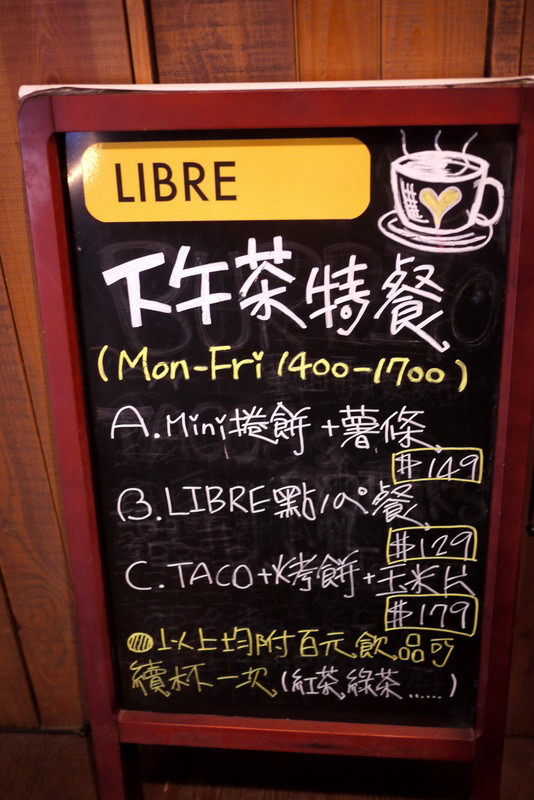 LIBRE
下午茶特餐
(Mon-Fri 1400-1700)
A.Mini捲餅+薯條
$149
B.LIBRE點心餐
$129
C.TACO+烤餅+玉米片
$179
以上均附百元飲品可
續杯一次(紅茶,綠茶......)